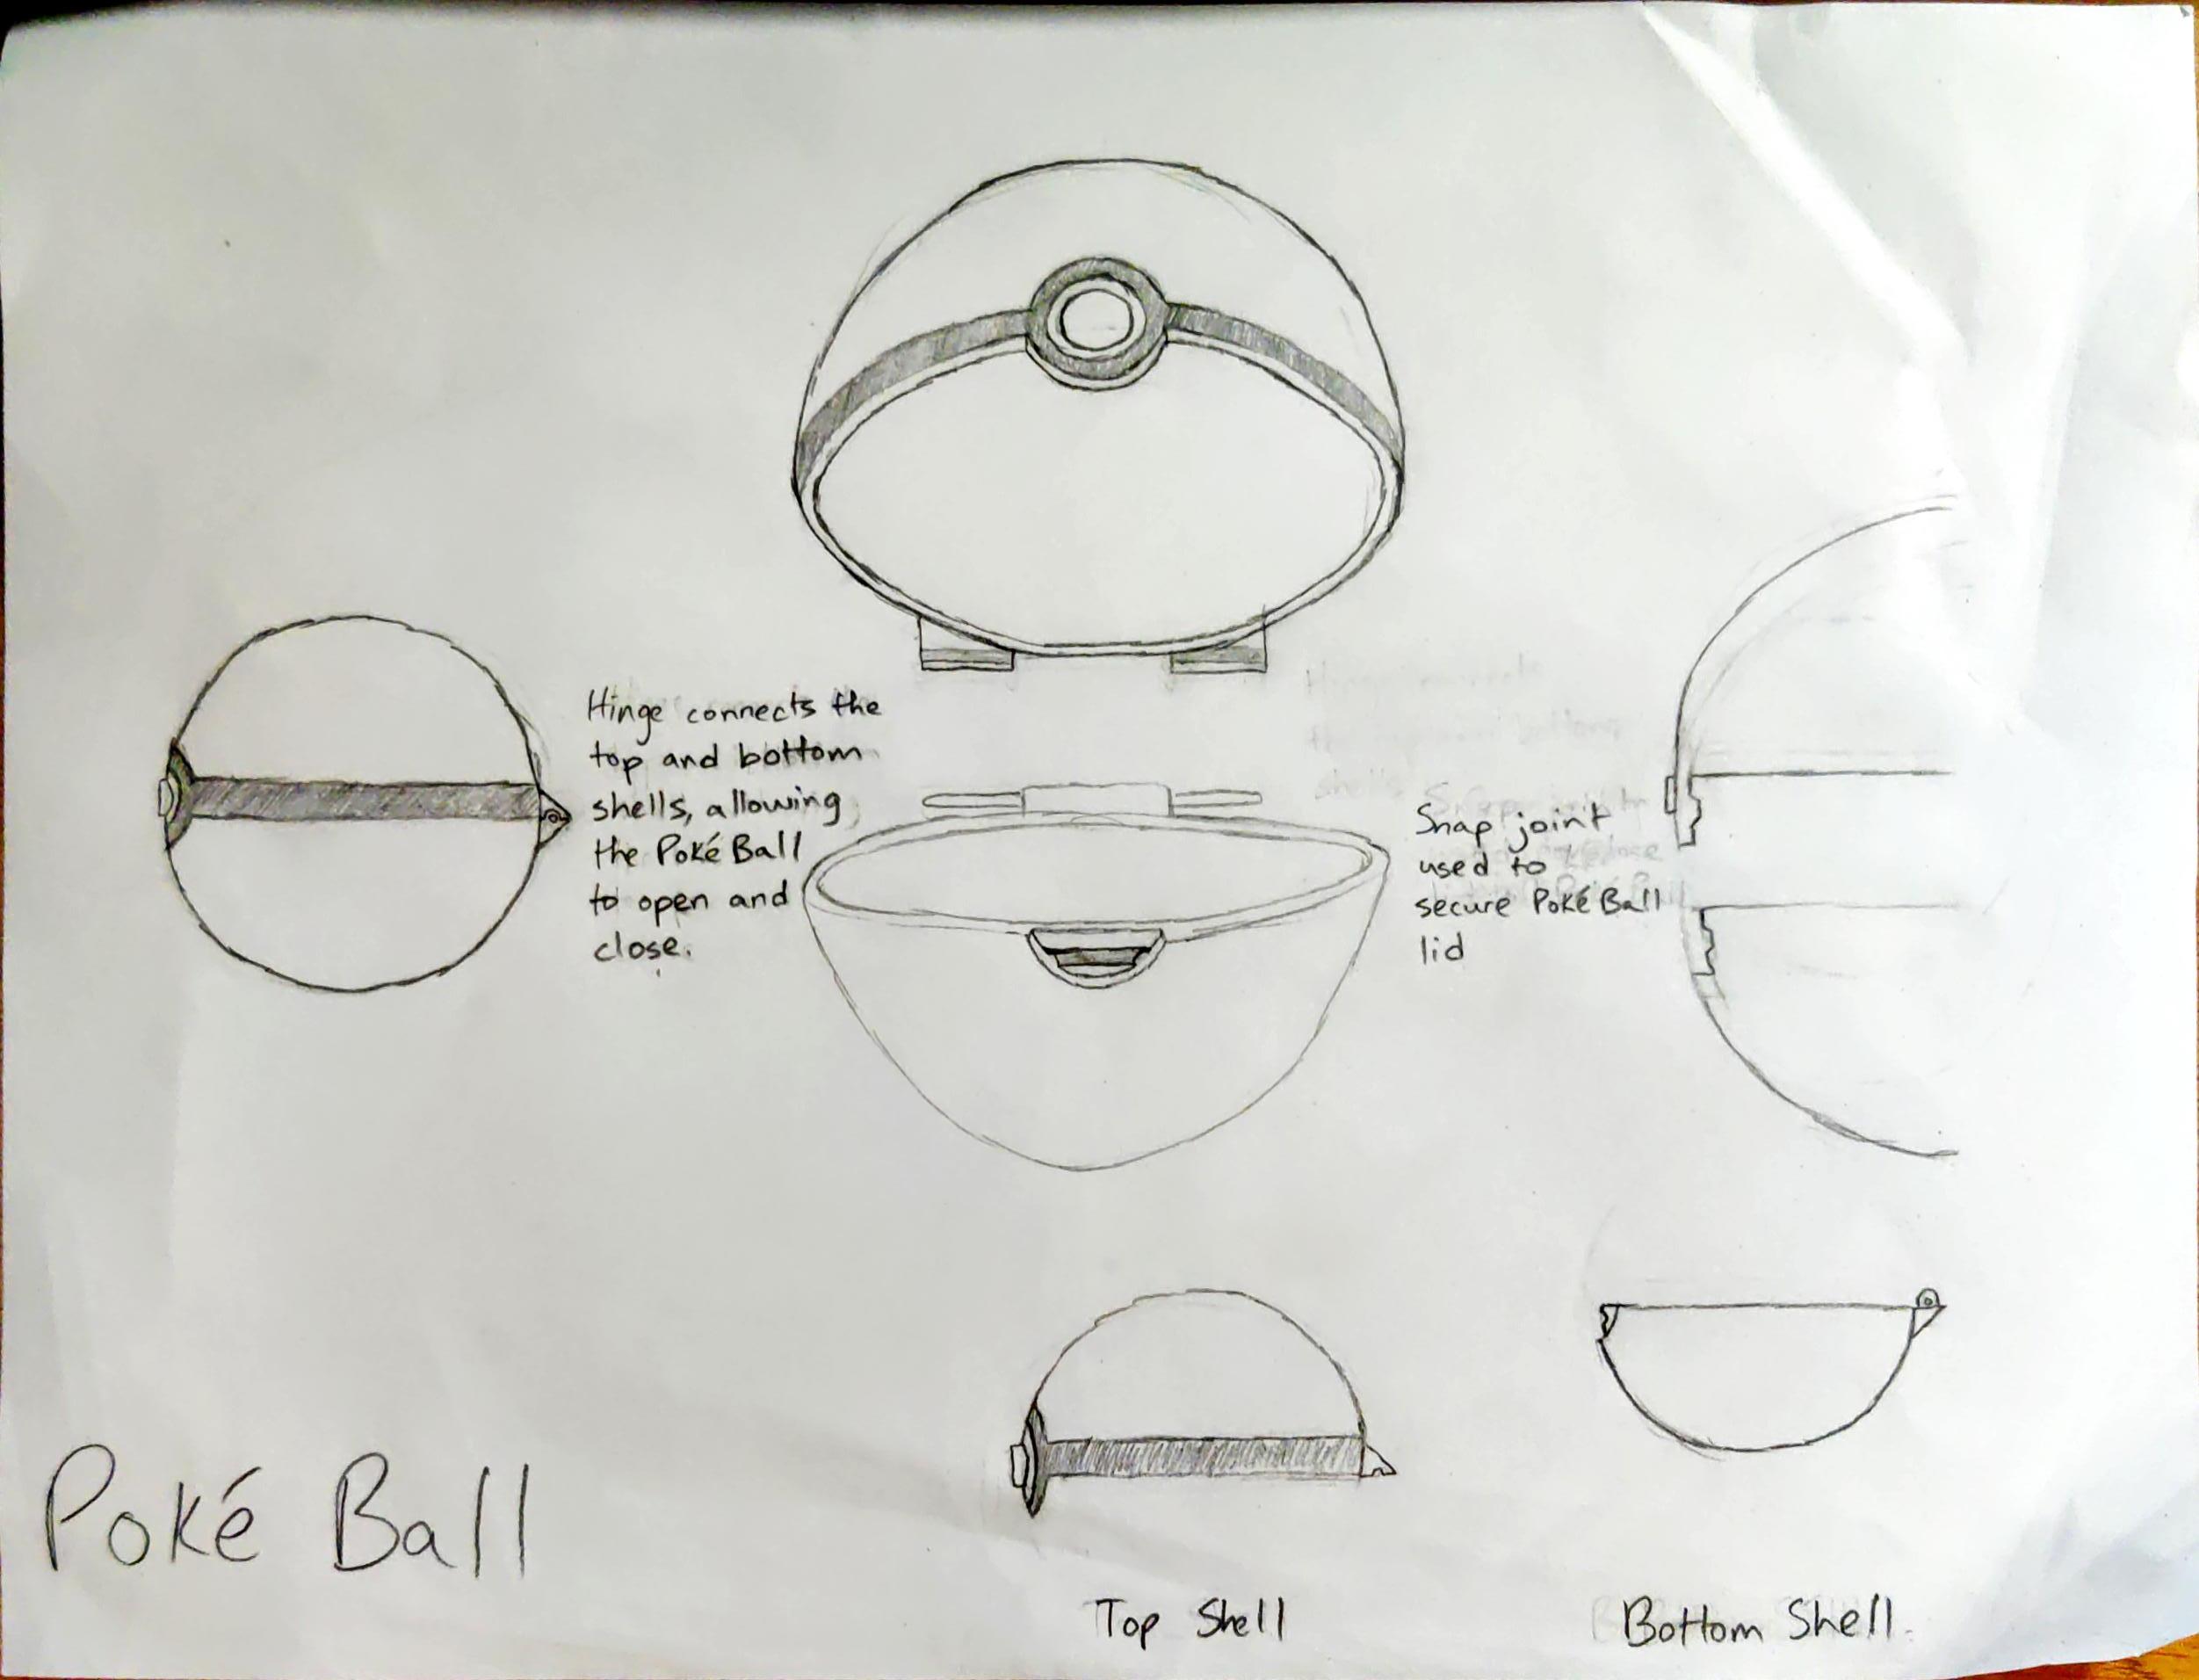 Hinge connects the
top and bottom
shells, allowing
the Poké Ball
to open and
close.
Snap joint
used to
secure Poké Ball
lid
Poké Ball
Top Shell
Bottom Shell.